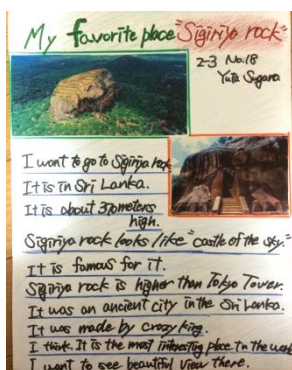 My favorite place "Sigiriya rock"
2-3 No.18
Yuta Sugara
I want to go to Sigiriya rock
It is in Sri Lanka.
It is about 370 meters
high.
Sigiriya rock looks like "castle of the sky."
It is famous for it.
Sigiriya rock is higher than Tokyo Tower.
It was an ancient city in the Sri Lanka.
It was made by crazy king.
I think. It is the most interesting place in the world
I want to see beautiful view there.